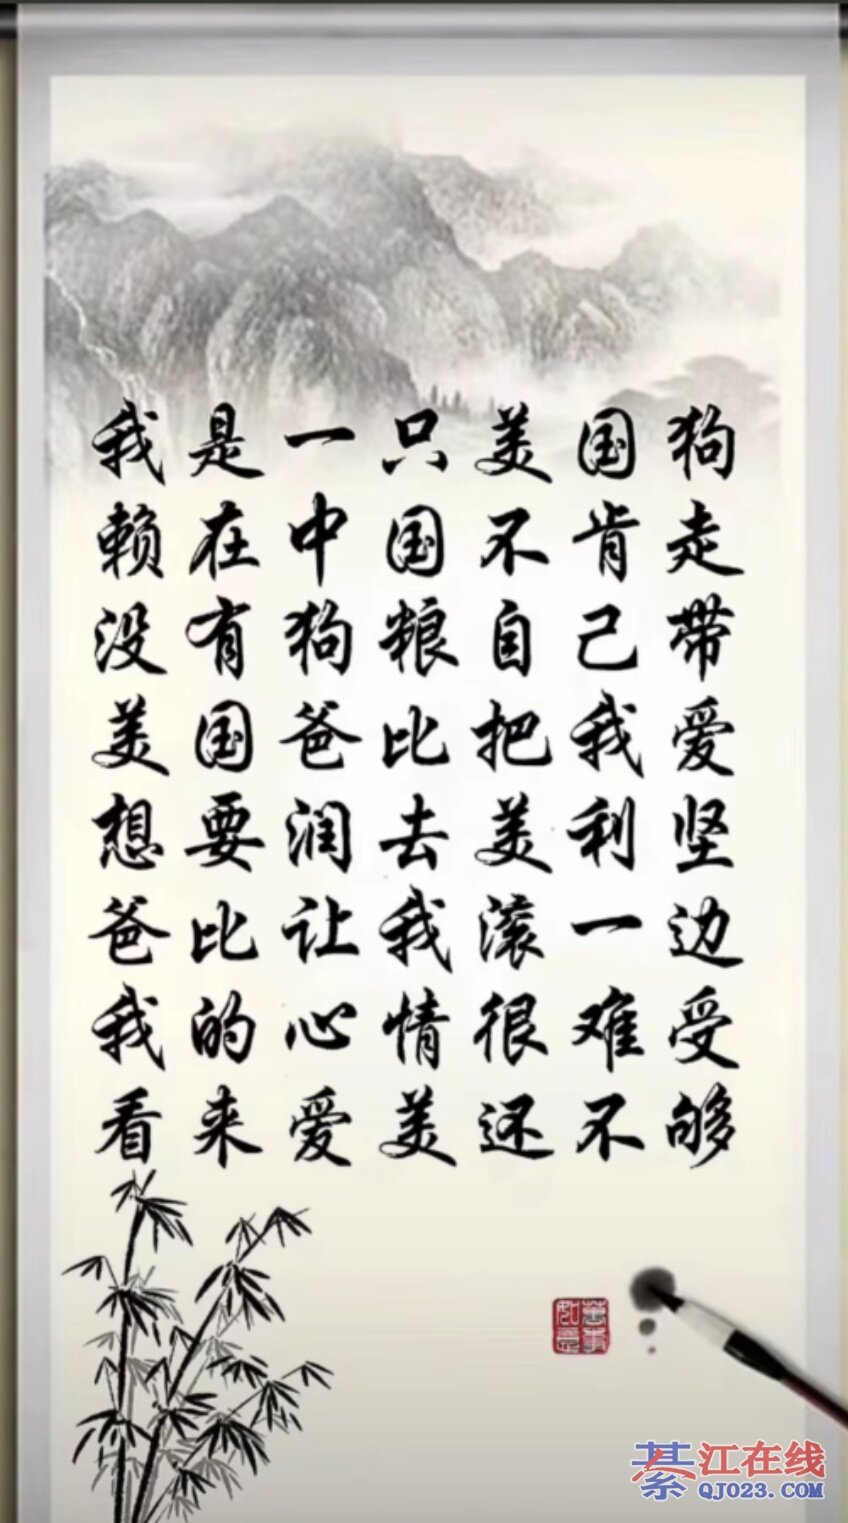 我是一只美国狗
赖在中国不肯走
没有狗粮自己带
美国爸比把我爱
想要润去美利坚
爸比让我滚一边
我的心情很难受
看来爱美还不够
万事如意
綦江在线
QJ023.COM